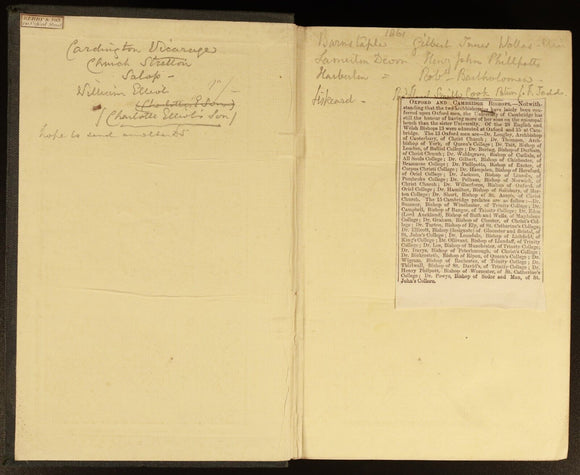 Cardington Vicarage
Church Stretton
Salop -
William Elliot
(Charlotte E Son)
(Charlotte Elliot's Son)
hope to send
1861
Barnstaple Gilbert Innes Wallas
Lamerton Devon Henry John Phillpotts
Harberton = Robt Bartholomew
Liskeard -
OXFORD AND CAMBRIDGE BISHOPS.—Notwith-
standing that the two archbishoprics have lately been con-
ferred upon Oxford men, the University of Cambridge has
still the honour of having more of her sons on the episcopal
bench than the sister University. Of the 28 English and
Welsh Bishops 13 were educated at Oxford and 15 at Cam-
bridge. The 13 Oxford men are—Dr. Longley, Archbishop
of Canterbury, of Christ Church; Dr. Thomson, Arch-
bishop of York, of Queen's College; Dr. Tait, Bishop of
London, of Balliol College; Dr. Baring, Bishop of Durham,
of Christ Church; Dr. Waldegrave, Bishop of Carlisle, of
All Souls College; Dr. Gilbert, Bishop of Chichester, of
Brasenose College; Dr. Phillpotts, Bishop of Exeter, of
Corpus Christi College; Dr. Hampden, Bishop of Hereford,
of Oriel College; Dr. Jackson, Bishop of Lincoln, of
Pembroke College; Dr. Pelham, Bishop of Norwich, of
Christ Church; Dr. Wilberforce, Bishop of Oxford, of
Oriel College; Dr. Hamilton, Bishop of Salisbury, of Mer-
ton College; Dr. Short, Bishop of St. Asaph, of Christ
Church. The 15 Cambridge prelates are as follow:—Dr.
Sumner, Bishop of Winchester, of Trinity College; Dr.
Campbell, Bishop of Bangor, of Trinity College; Dr. Eden
(Lord Auckland), Bishop of Bath and Wells, of Magdalen
College; Dr. Graham, Bishop of Chester, of Christ's Col-
lege; Dr. Turton, Bishop of Ely, of St. Catherine's College;
Dr. Ellicott, Bishop (designate) of Gloucester and Bristol, of
St. John's College; Dr. Lonsdale, Bishop of Lichfield, of
King's College; Dr. Ollivant, Bishop of Llandaff, of Trinity
College; Dr. Lee, Bishop of Manchester, of Trinity College;
Dr. Davys, Bishop of Peterborough, of Christ's College;
Dr. Bickersteth, Bishop of Ripon, of Queen's College; Dr.
Wigram, Bishop of Rochester, of Trinity College; Dr.
Thirlwall, Bishop of St. David's, of Trinity College; Dr.
Henry Philpott, Bishop of Worcester, of St. Catherine's
College; Dr. Powys, Bishop of Sodor and Man, of St.
John's College.